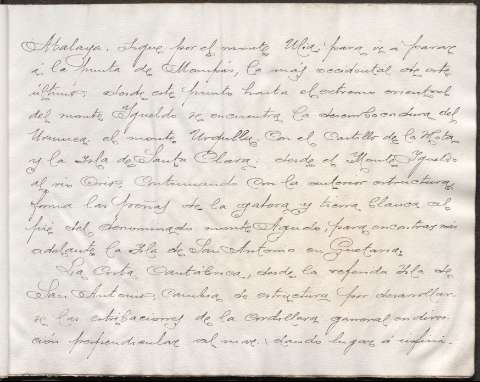 Atalaya. Sigue por el monte Ulia, para ir á parar
á la punta de Mompás, lo más occidental de este
último; desde este punto hasta el extremo oriental
del monte Igueldo se encuentra la desembocadura del
Urumea el monte Urdulla con el Castillo de la Mota
y la Isla de Santa Clara; desde el Monte Igueldo
al rio Orio, continuando con la anterior estructura
forma las peñas de la gatera y tierra blanca al
pié del denominado monte Agudo, para encontrar más
adelante la Isla de San Antonio en Guetaria.
La Costa Cantábrica, desde la referida Isla de
San Antonio, cambia de estructura por desarrollar-
se las estribaciones de la Cordillera general en direc-
ción perpendicular al mar, dando lugar á infini-